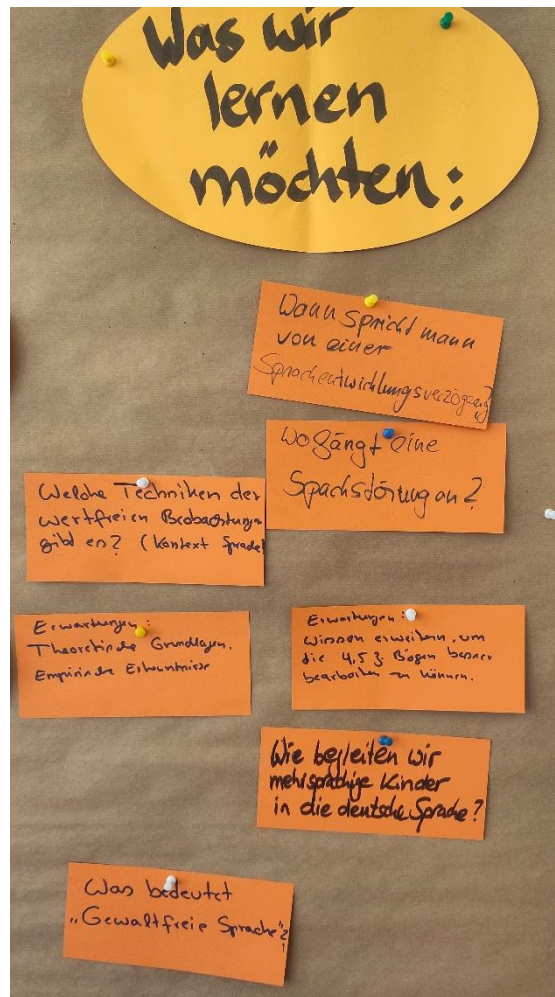 Was wir
lernen
möchten:
Wann spricht mann
von einer
Sprachentwicklungsverzögerung?
Wo fängt eine
Spachstörung an?
Welche Techniken der
wertfreien Beobachtungen
gibt es? (Kontext Sprache)
Erwartungen:
Theoretische Grundlagen.
Empirische Erkenntnisse
Erwartungen:
wissen erweitern, um
die 4,5 J Bögen besser
bearbeiten zu können.
Wie begleiten wir
mehrsprachige Kinder
in die deutsche Sprache?
Was bedeutet
„Gewaltfreie Sprache"?